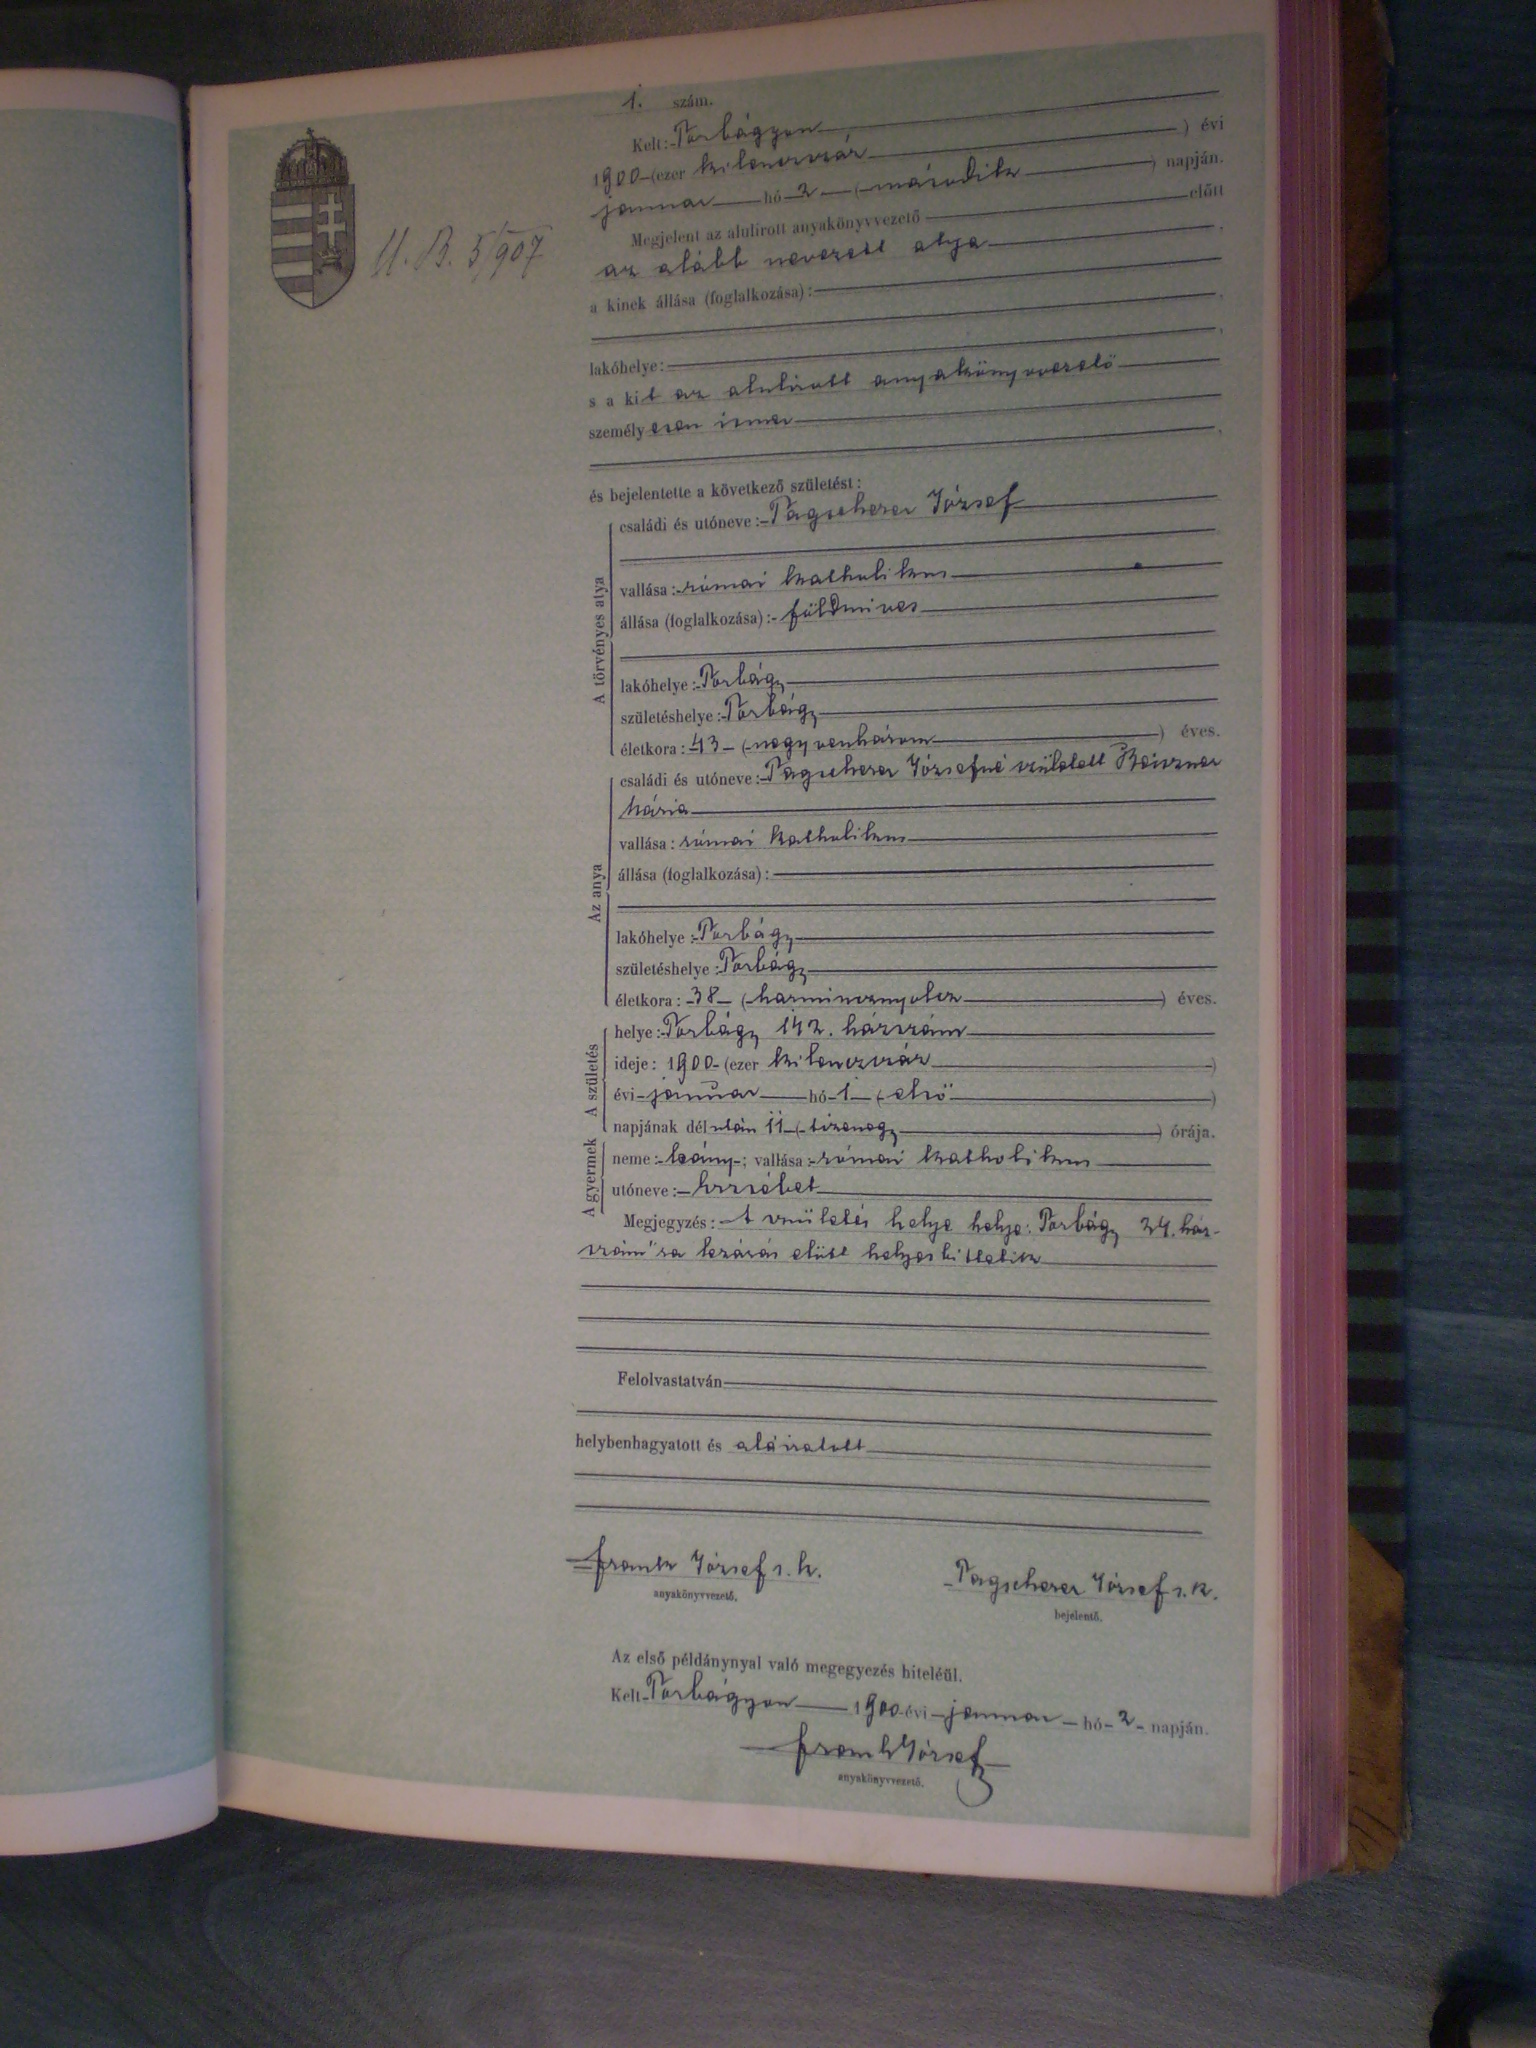 1. szám.
Kelt: Torbágyon
1900 (ezer kilenczszáz ) évi
január hó 2 (második ) napján.
U. B. 5/907
Megjelent az alulirott anyakönyvvezető előtt
az alább nevezett atya
a kinek állása (foglalkozása):
lakóhelye:
s a kit az alulirott anyakönyvvezető
személyesen ismer
és bejelentette a következő születést:
A törvényes atya
családi és utóneve: Pagscherer József
vallása: római katholikus
állása (foglalkozása): földmives
lakóhelye: Torbágy
születéshelye: Torbágy
életkora: 43 (negyvenhárom ) éves.
Az anya
családi és utóneve: Pagscherer Józsefné született
Mária
vallása: római katholikus
állása (foglalkozása):
lakóhelye: Torbágy
születéshelye: Torbágy
életkora: 38 (harmincznyolcz ) éves.
A születés
helye: Torbágy 142. házszám
ideje: 1900 (ezer kilenczszáz )
évi január hó 1 (első )
napjának délután 11 (tizenegy ) órája.
A gyermek
neme: leány; vallása: római katholikus
utóneve: Erzsébet
Megjegyzés: A születés helye helye: Torbágy 24. ház-
szám"ra lezárás előtt helyesbittetik
Felolvastatván
helybenhagyatott és aláiratott
Frank József s. k.
anyakönyvvezető.
Pagscherer József s. k.
bejelentő.
Az első példánynyal való megegyezés hiteléül.
Kelt Torbágyon 1900 évi január hó 2 napján.
Frank József
anyakönyvvezető.